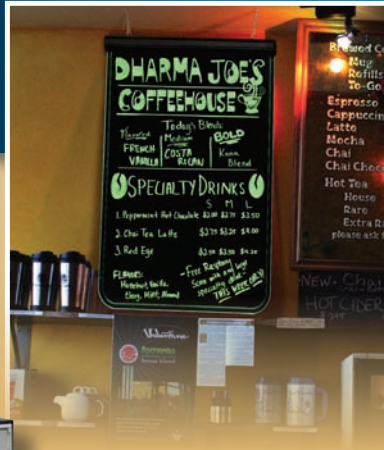 DHARMA JOE'S
COFFEEHOUSE
Today's Blends
Flavored Medium BOLD
FRENCH VANILLA COSTA RICAN Kona Blend
SPECIALTY DRINKS
S M L
1. Peppermint Hot Chocolate $2.00 $2.75 $3.50
2. Chai Tea Latte $2.75 $3.25 $4.00
3. Red Eye
FLAVORS:
Hazelnut, Vanilla,
Mint, Almond
-Free Raspberry
Scone with any large
specialty drink-
THIS WEEK ONLY!
Brewed Co
Mug
Refills
To-Go
Espresso
Cappuccin
Latte
Mocha
Chai
Chai Choc
Hot Tea
House
Rare
Extra
please ask
NEW- Cha
HOT CIDER
Valentine